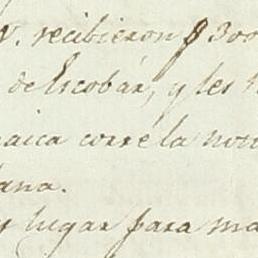 V. recibieron $ 300
de Escobar, y les
aica corre la not
ana.
lugar para ma